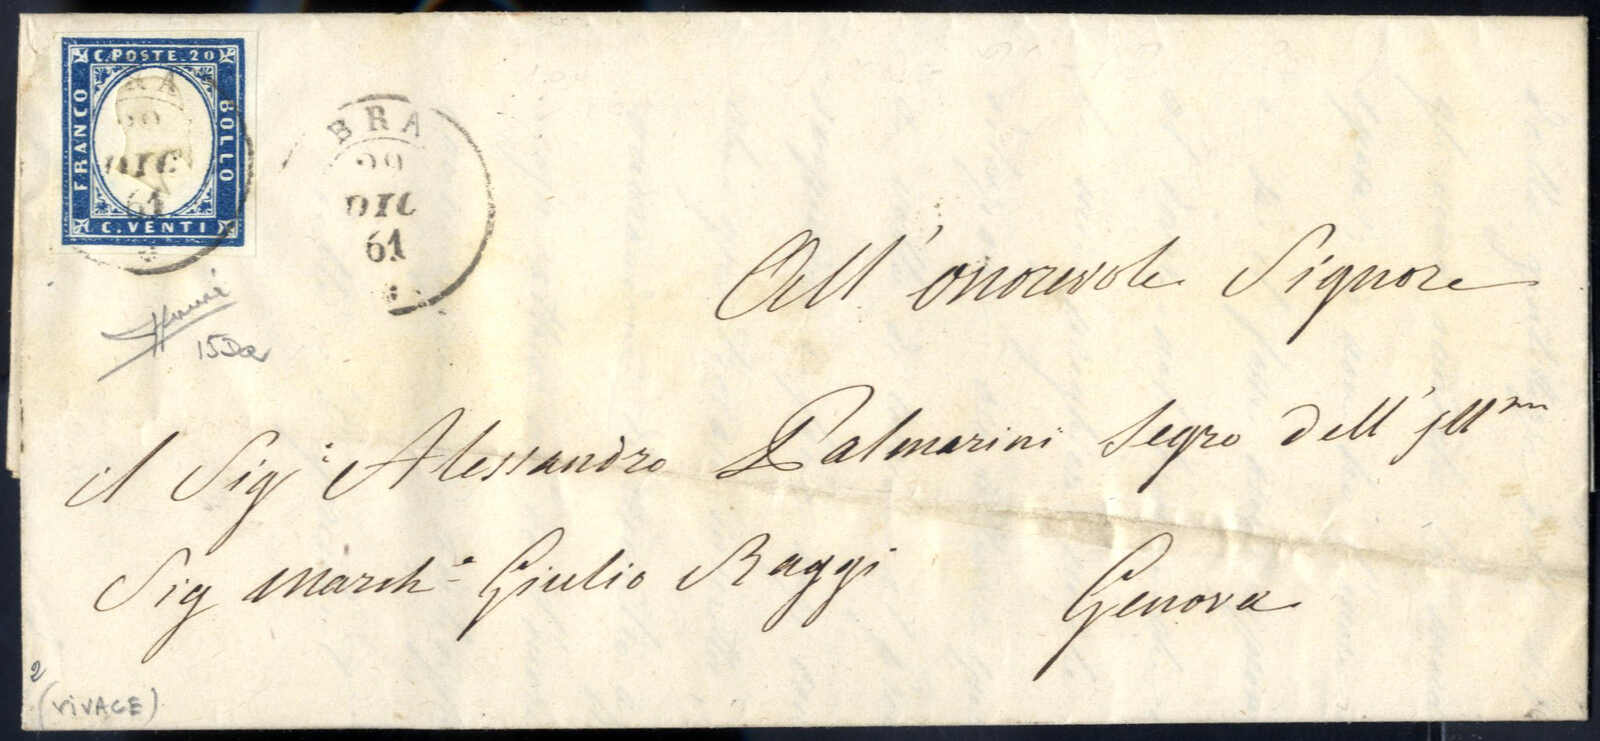 C. POSTE. 20
FRANCO
BOLLO
C. VENTI
BRA
29
DIC
61
BRA
29
DIC
61
All' onorevole Signore
il Sig.r Alessandro Palmarini Segro dell' Ill.mo
Sig March.e Giulio Raggi
Genova
2
(VIVACE)